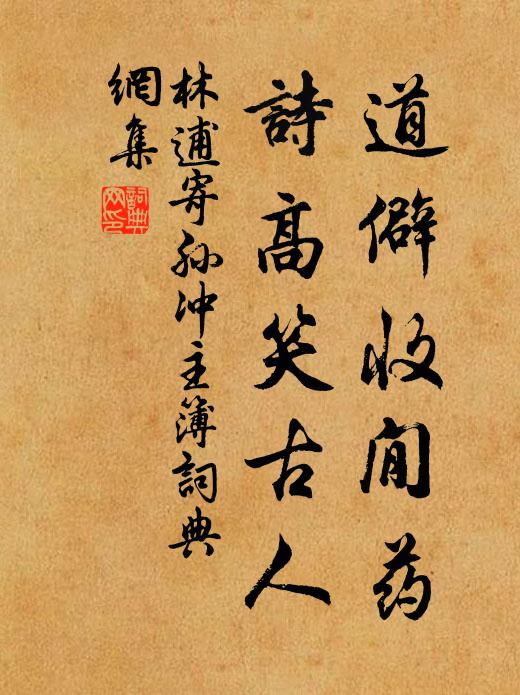 道僻收闲药
詩高笑古人
林逋寄孙冲主簿詞典
網集
詞典
网印